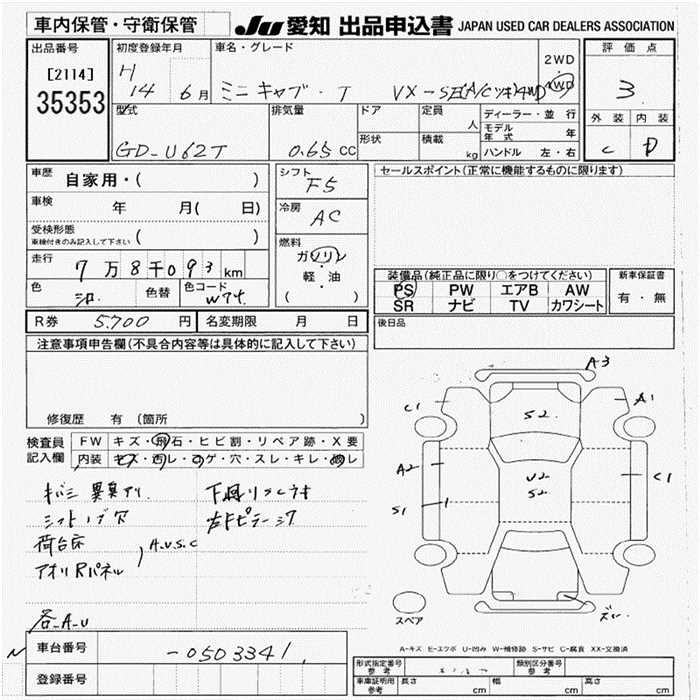 車内保管・守衛保管
JU 愛知 出品申込書 JAPAN USED CAR DEALERS ASSOCIATION
出品番号
[2114]
35353
初度登録年月
H
14 6月
車名・グレード
ミニキャブ・T VX-SE(A/Cツキ)4WD
2WD
4WD
評価点
3
外装 内装
C D
型式
GD-U62T
排気量
0.65 CC
ドア
形状
定員
人
積載
kg
ディーラー・並行
モデル年式 年
ハンドル 左・右
車歴 自家用・( )
車検 年 月( 日)
受検形態
車検付きのみ記入して下さい ( )
走行 7万8千093km
色 シロ 色替 色コード W74
R券 5,700 円 名変期限 月 日
シフト
F5
冷房
AC
燃料
ガソリン
・
軽・油
( )
セールスポイント(正常に機能するものに限ります)
装備品(純正品に限り○をつけてください)
PS PW エアB AW
SR ナビ TV カワシート
新車保証書
有・無
後日品
注意事項申告欄(不具合内容等は具体的に記入して下さい)
修復歴 有 (箇所 )
検査員
記入欄
FW キズ・飛石・ヒビ割・リペア跡・X要
内装 キズ・ヨゴレ・コゲ・穴・スレ・キレ・
異臭アリ
シフトノブ穴
荷台床
アオリRパネル
A.U.S.C
各_A_U
車台番号 -0503341
登録番号
A3
C1
A1
S2
A2
U2
S2
C1
S1
1
スペア
A-キズ E-エクボ U-凹み W-補修跡 S-サビ C-腐食 XX-交換済
形式指定番号
参考
類別区分番号
参考
車庫証明用
参考
長さ cm 幅 cm 高さ cm